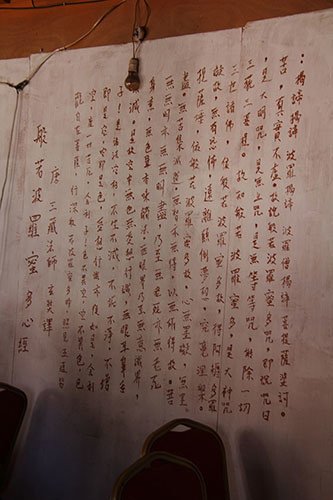 般若波羅蜜多心經
唐 三藏法師 玄奘譯
觀自在菩薩，行深般若波羅蜜多時，照見五蘊皆
空，度一切苦厄。舍利子！色不異空，空不異色，色
即是空，空即是色，受想行識，亦復如是。舍利
子！是諸法空相，不生不滅，不垢不淨，不增
不減，是故空中無色，無受想行識，無眼耳鼻舌
身意，無色聲香味觸法，無眼界，乃至無意識界，
無無明，亦無無明盡，乃至無老死，亦無老死
盡，無苦集滅道，無智亦無得，以無所得故。菩
提薩埵，依般若波羅蜜多故，心無罣礙，無罣
礙故，無有恐怖，遠離顛倒夢想，究竟涅槃。
三世諸佛，依般若波羅蜜多故，得阿耨多羅
三藐三菩提。故知般若波羅蜜多，是大神咒
，是大明咒，是無上咒，是無等等咒，能除一切
苦，真實不虛。故說般若波羅蜜多咒，即說咒曰
：揭諦揭諦 波羅揭諦 波羅僧揭諦 菩提薩婆訶。